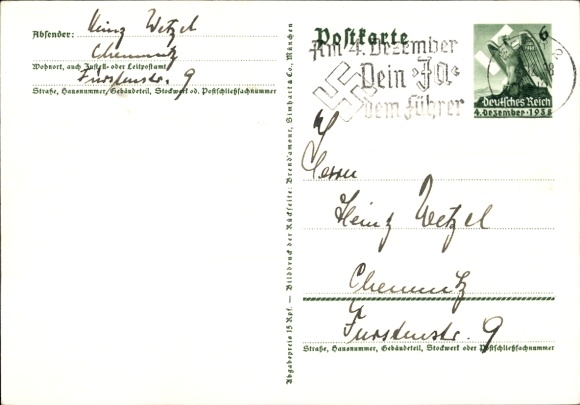 Absender: Heinz Wetzel
Chemnitz
Wohnort, auch Zustell- oder Leitpostamt
Fürstenstr. 9
Straße, Hausnummer, Gebäudeteil, Stockwerk od. Postschließfachnummer
Abgabepreis 15 Rpf. — Bilddruck der Rückseite: Brend'amour, Simhart & Co., München
Postkarte
Am 4. Dezember
Dein "Ja"
dem Führer
6
Deutsches Reich
4. Dezember · 1938
Herrn
Heinz Wetzel
Chemnitz
Fürstenstr. 9
Straße, Hausnummer, Gebäudeteil, Stockwerk oder Postschließfachnummer